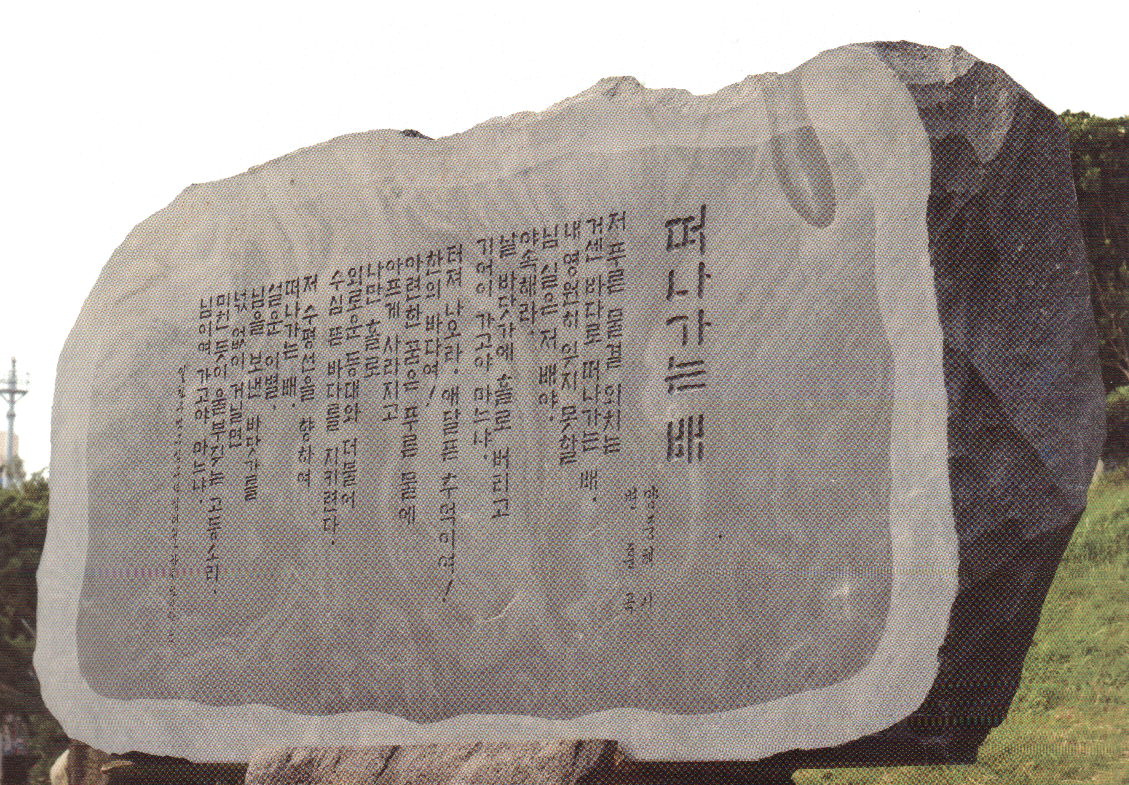 떠나가는 배
양중해 시
변훈 곡
저 푸른 물결 외치는
거센 바다로 떠나가는 배.
내 영원히 잊지 못할
님 실은 저 배야.
야속해라.
날 바닷가에 홀로 버리고
기어이 가고야 마느냐.
터져 나오라. 애달픈 추억이여!
한의 바다여!
아련한 꿈은 푸른 물에
아프게 사라지고
나만 홀로
외로운 등대와 더불어
수심 뜬 바다를 지키련다.
저 수평선을 향하여
떠나가는 배.
설운 이별.
님을 보낸 바닷가를
넋 없이 거닐면
미친 듯이 울부짖는 고동소리.
님이여 가고야 마느냐.